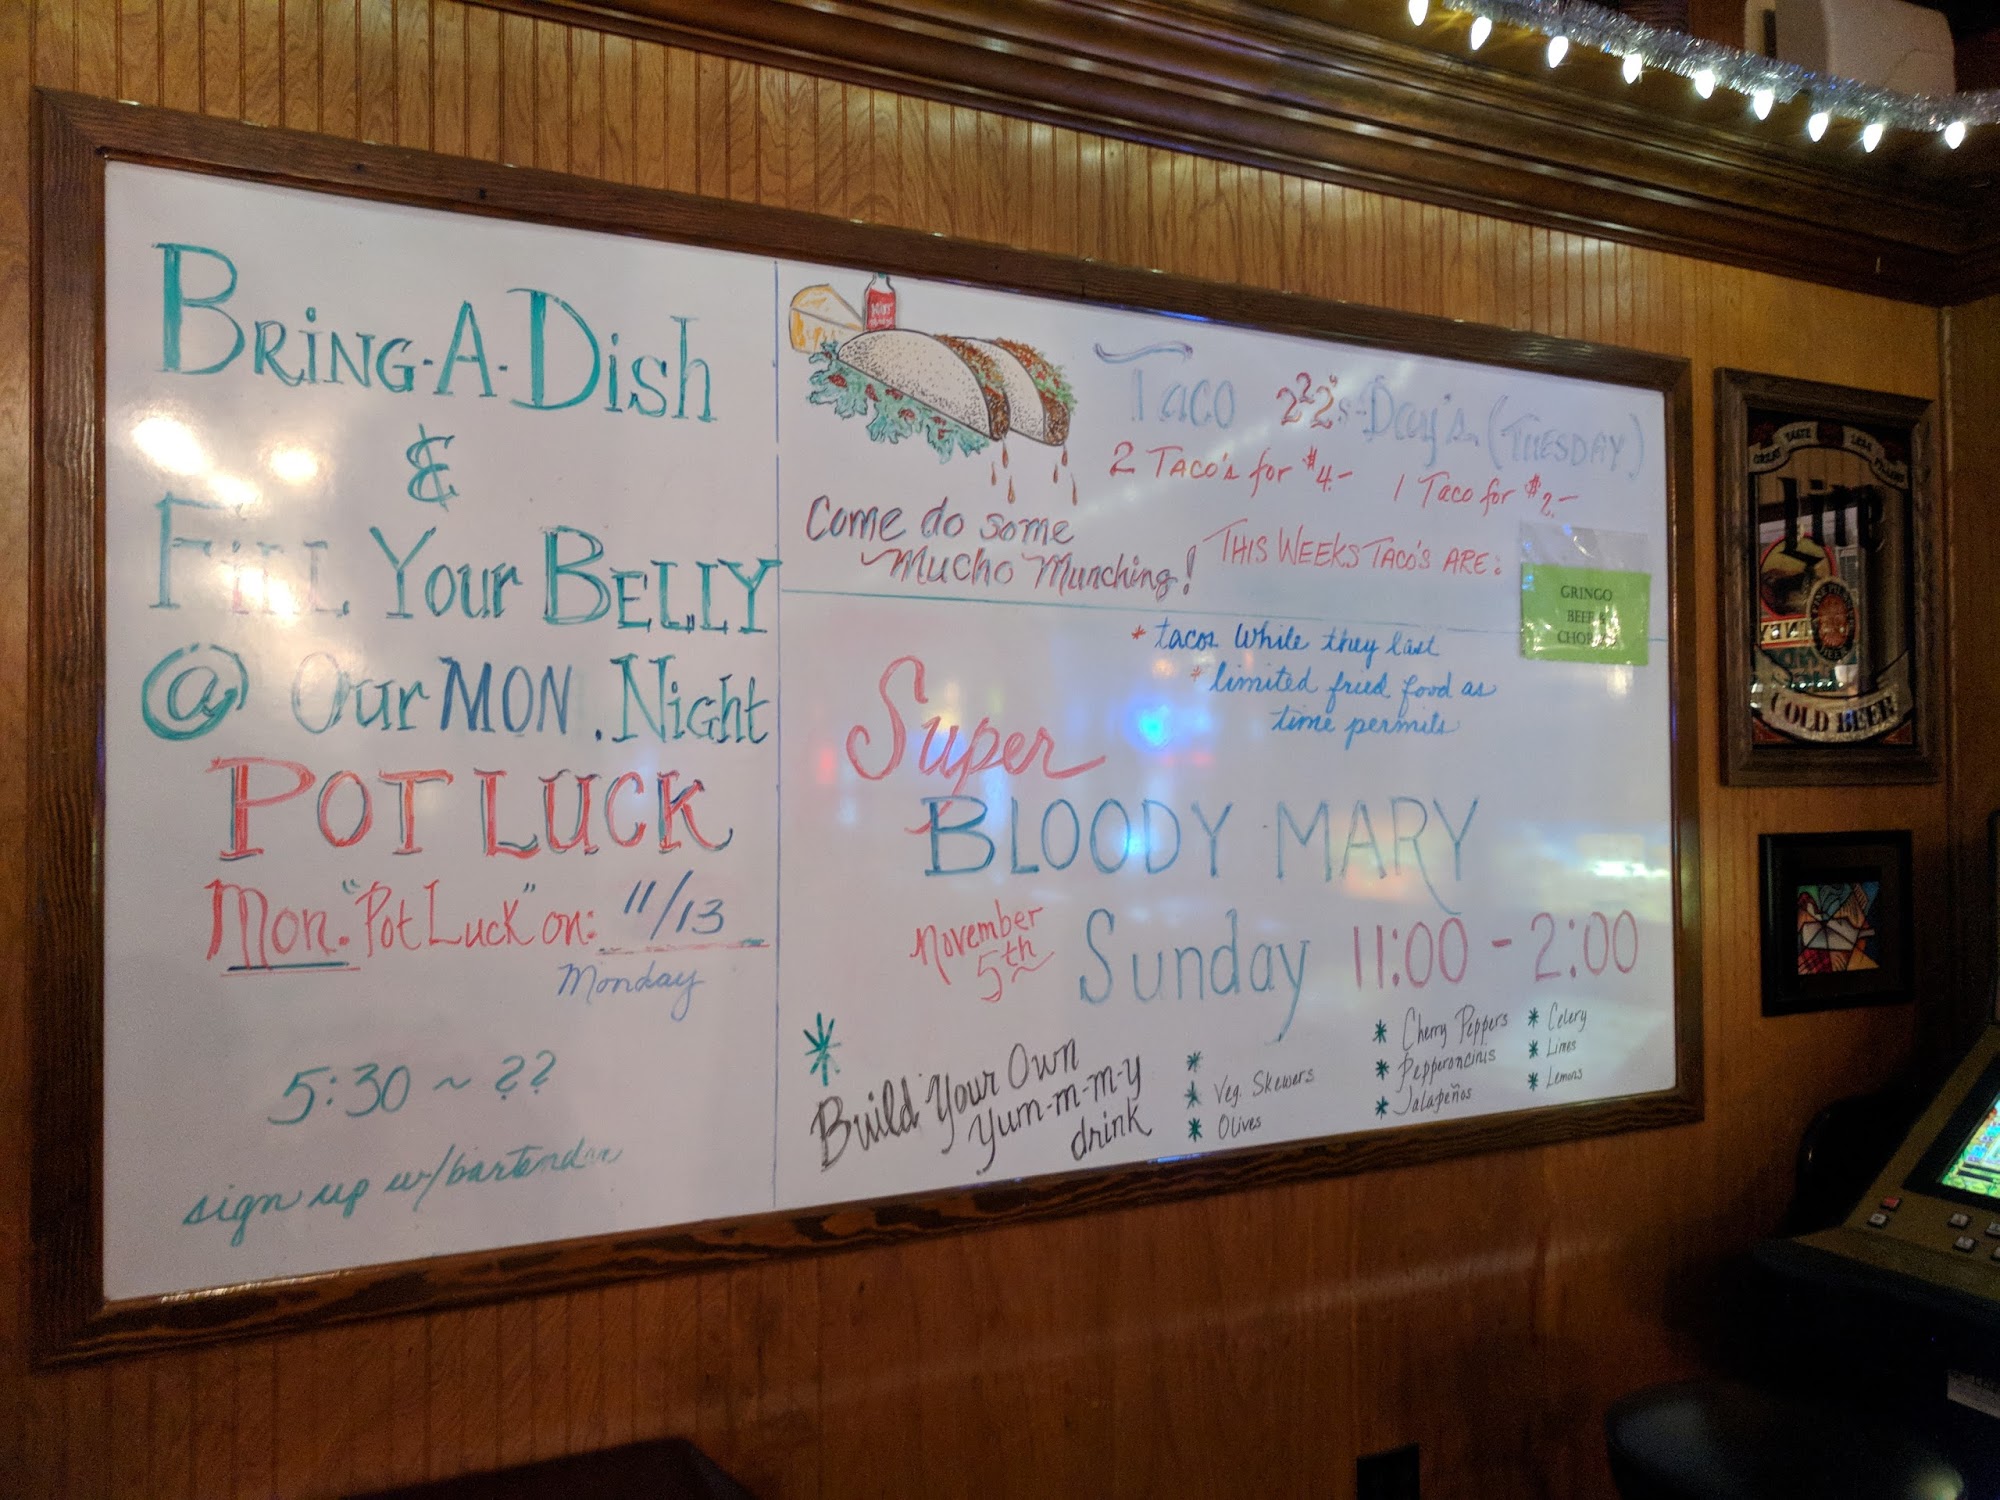 BRING-A-DISH
&
FILL YOUR BELLY
@ OUR MON. NIGHT
POT LUCK
Mon. "Pot Luck" on: 11/13
Monday
5:30 ~ ??
sign up w/bartender
HOT
Taco 222's-Day's. (TUESDAY)
2 Taco's for $4.-
1 Taco for $2.-
Come do some
Mucho Munching!
THIS WEEKS TACO'S ARE:
GRINGO
BEEF &
* tacos while they last
* limited fried food as
time permits
Super
BLOODY MARY
November
5th
Sunday 11:00 - 2:00
* Build Your Own
Yum-m-m-y
drink
*
* Veg. Skewers
* Olives
* Cherry Peppers
* Pepperoncinis
* Jalapeños
* Celery
* Limes
* Lemons
GREAT TASTE LESS FILLING
Lite
COLD BEER